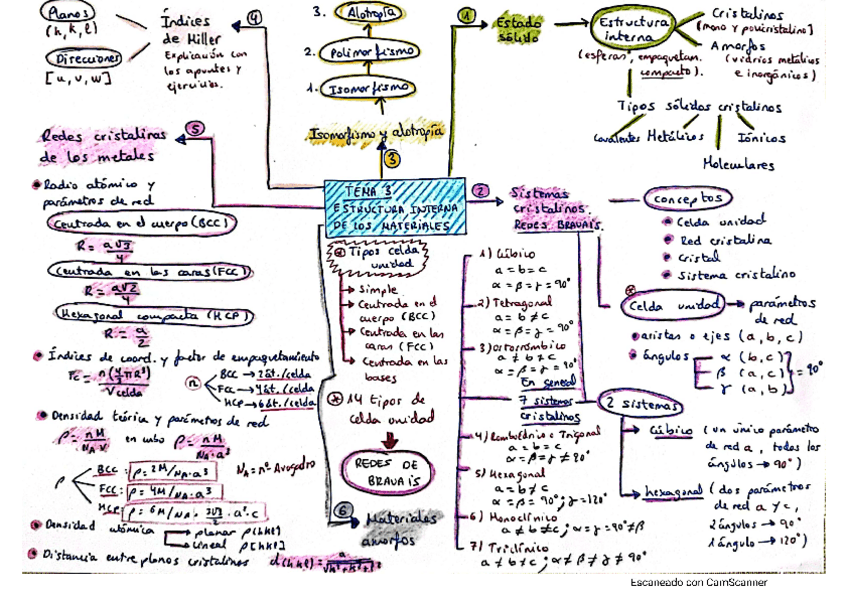 Planos
(h, k, l)
Direcciones
[u, v, w]
Índices
de Miller
Explicación con
los apuntes y
ejercicios.
4
3. Alotropía
2. Polimorfismo
1. Isomorfismo
Isomorfismo y alotropía
3
1
Estado
sólido
Estructura
interna
(esferas, empaquetam.
compacto).
Cristalinos
(mono y policristalino)
Amorfos
(vidrios metálicos
e inorgánicos)
Tipos sólidos cristalinos
Covalentes Metálicos Iónicos
Moleculares
5
Redes cristalinas
de los metales
Radio atómico y
parámetros de red
Centrada en el cuerpo (BCC)
R = a√3/4
Centrada en las caras (FCC)
R = a√2/4
Hexagonal compacta (HCP)
R = a/2
Índices de coord. y factor de empaquetamiento
Fc = n(4/3 π R³)/Vcelda
n
BCC → 2 át./celda
FCC → 4 át./celda
HCP → 6 át./celda
Densidad teórica y parámetros de red
ρ = nM/NA·V en cubo ρ = nM/NA·a³
ρ
BCC: ρ = 2M/NA·a³
FCC: ρ = 4M/NA·a³
HCP: ρ = 6M/NA·
NA = nº Avogadro
Densidad atómica
planar ρ(hkl)
lineal ρ[hkl]
Distancia entre planos cristalinos d(hkl) = a/√h²+k²+l²
TEMA 3
ESTRUCTURA INTERNA
DE LOS MATERIALES
Tipos celda
unidad
Simple
Centrada en el
cuerpo (BCC)
Centrada en las
caras (FCC)
Centrada en las
bases
14 tipos de
celda unidad
REDES DE
BRAVAIS
6
Materiales
amorfos
2
Sistemas
cristalinos
REDES BRAVAIS.
conceptos
Celda unidad
Red cristalina
Cristal
Sistema cristalino
Celda unidad → parámetros
de red
aristas o ejes (a, b, c)
ángulos
α (b, c)
β (a, c)
γ (a, b)
= 90°
1) Cúbico
a = b = c
α = β = γ = 90°
2) Tetragonal
a = b ≠ c
α = β = γ = 90°
3) Ortorrómbico
a ≠ b ≠ c
α = β = γ = 90°
En general
7 sistemas
cristalinos
4) Romboédrico o Trigonal
a = b = c
α = β = γ ≠ 90°
5) Hexagonal
a = b ≠ c
α = β = 90°; γ = 120°
6) Monoclínico
a ≠ b ≠ c; α = γ = 90° ≠ β
7) Triclínico
a ≠ b ≠ c; α ≠ β ≠ γ ≠ 90°
2 sistemas
Cúbico (un único parámetro
de red a, todos los
ángulos → 90°)
hexagonal (dos parámetros
de red a y c,
2 ángulos → 90°
1 ángulo → 120°)
Escaneado con CamScanner